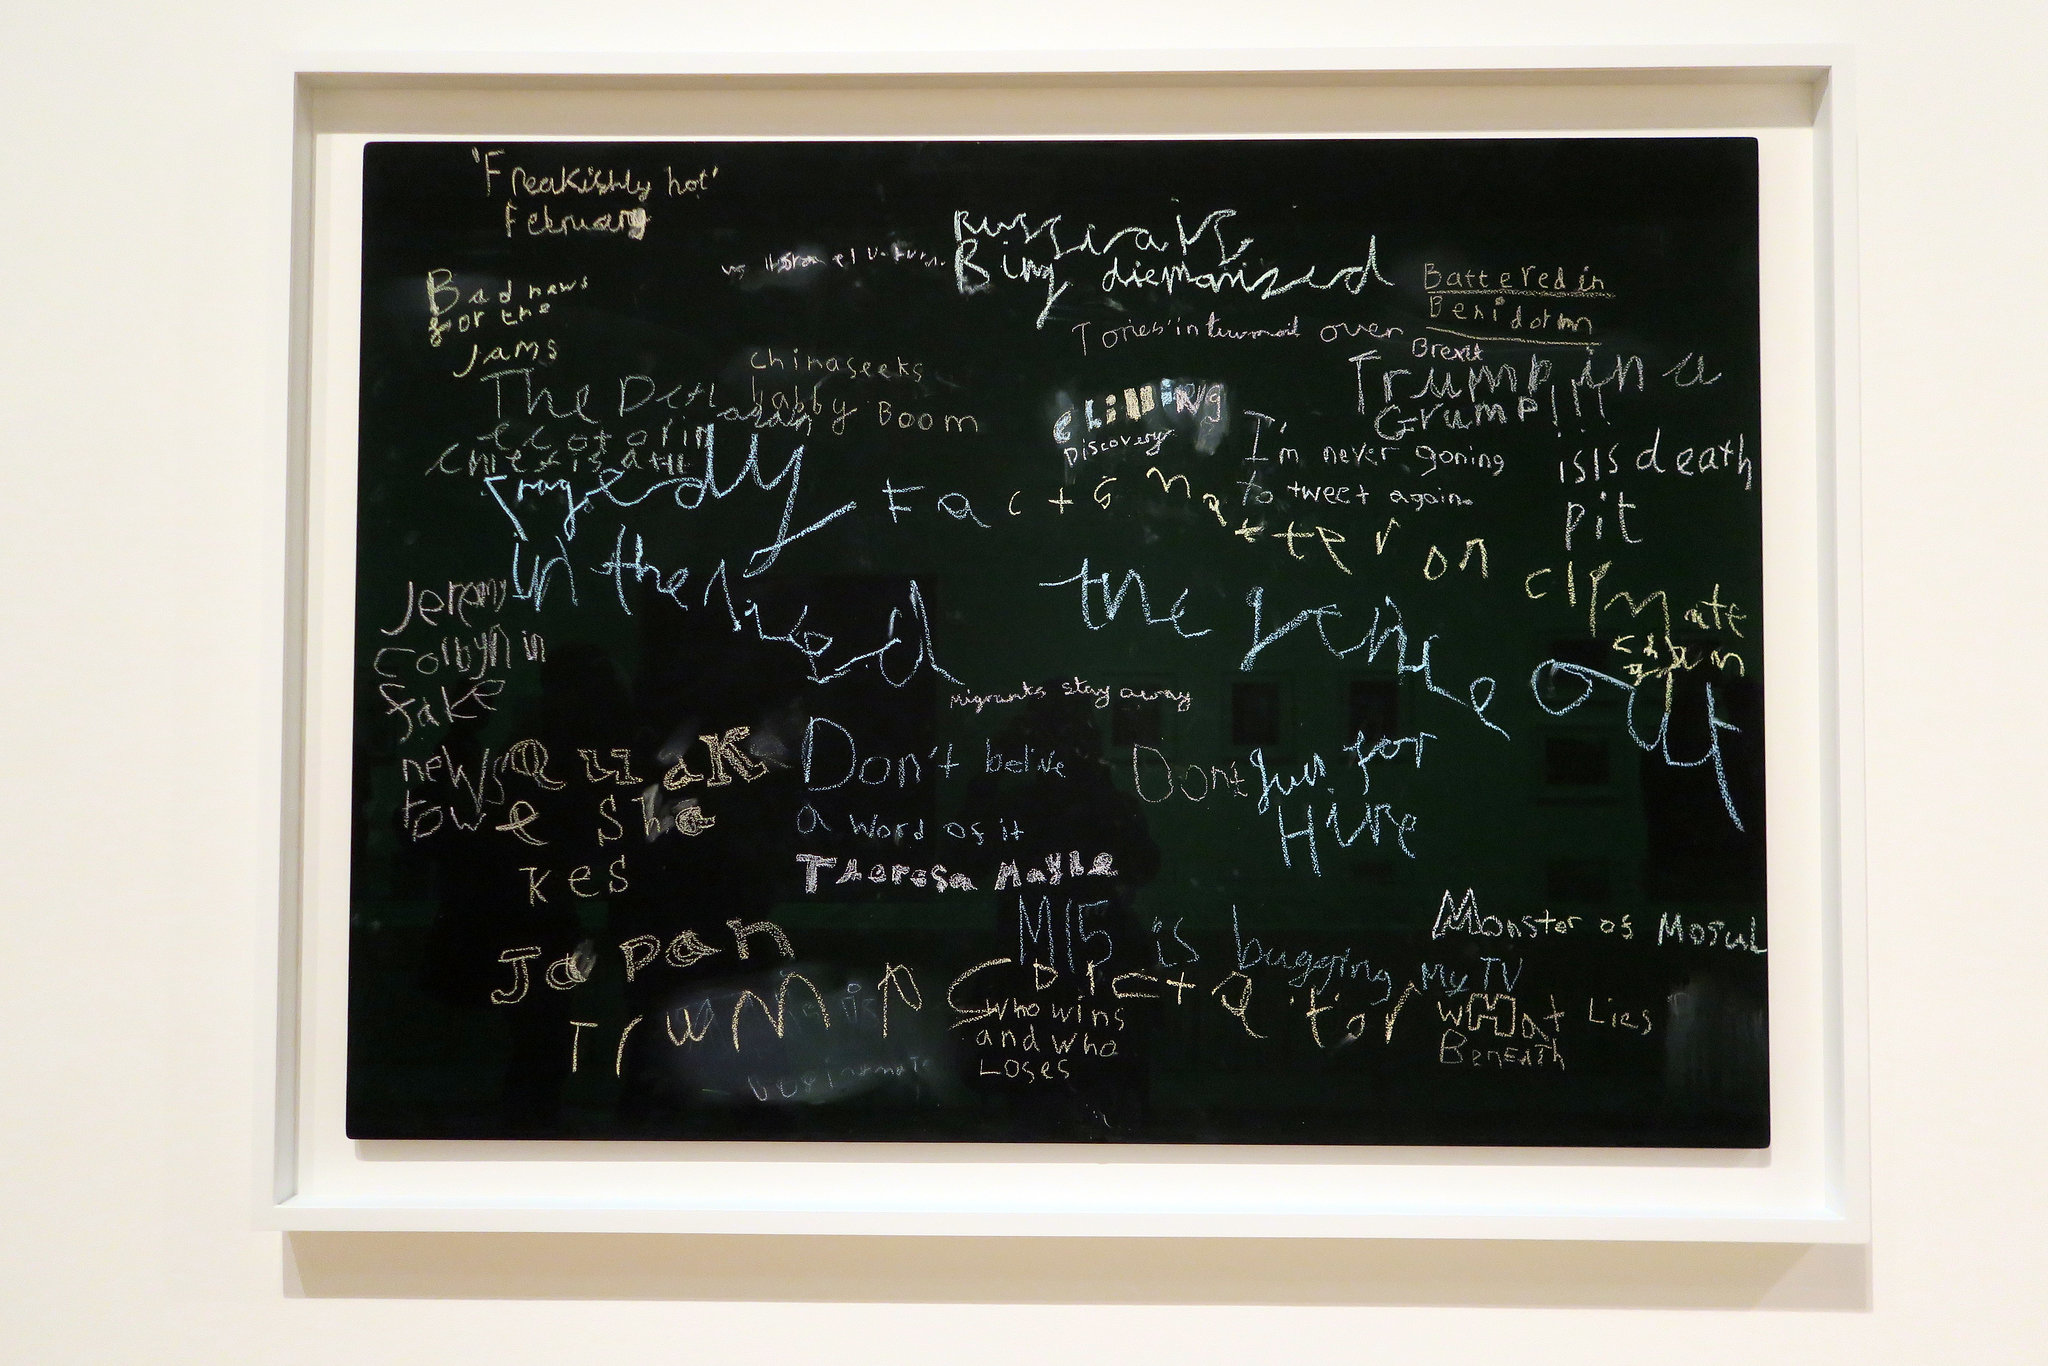 'Freakishly hot'
February
Russia is
Bing diemonised
Bad news
for the
Jams
Battered in
Benidorm
Tories in turmoil over
Brexit
chinaseeks
babby Boom
Trump in a
Grump!!!
The
CHilliNg
Discovery
I'm never goning
to tweet again.
isis death
pit
tragedy
in the
Facts matter on
climate
the genie out
Jeremy
Corbyn in
fake
news
towe
Quak
e Sha
kes
Japan
migrants stay away
Don't belive
a word of it
Theresa Maybe
Dont
gun for
Hire
M15 is bugging my TV
Monster of Mosul
Trump
Dictator
Who wins
and who
Loses
WHat Lies
Beneath